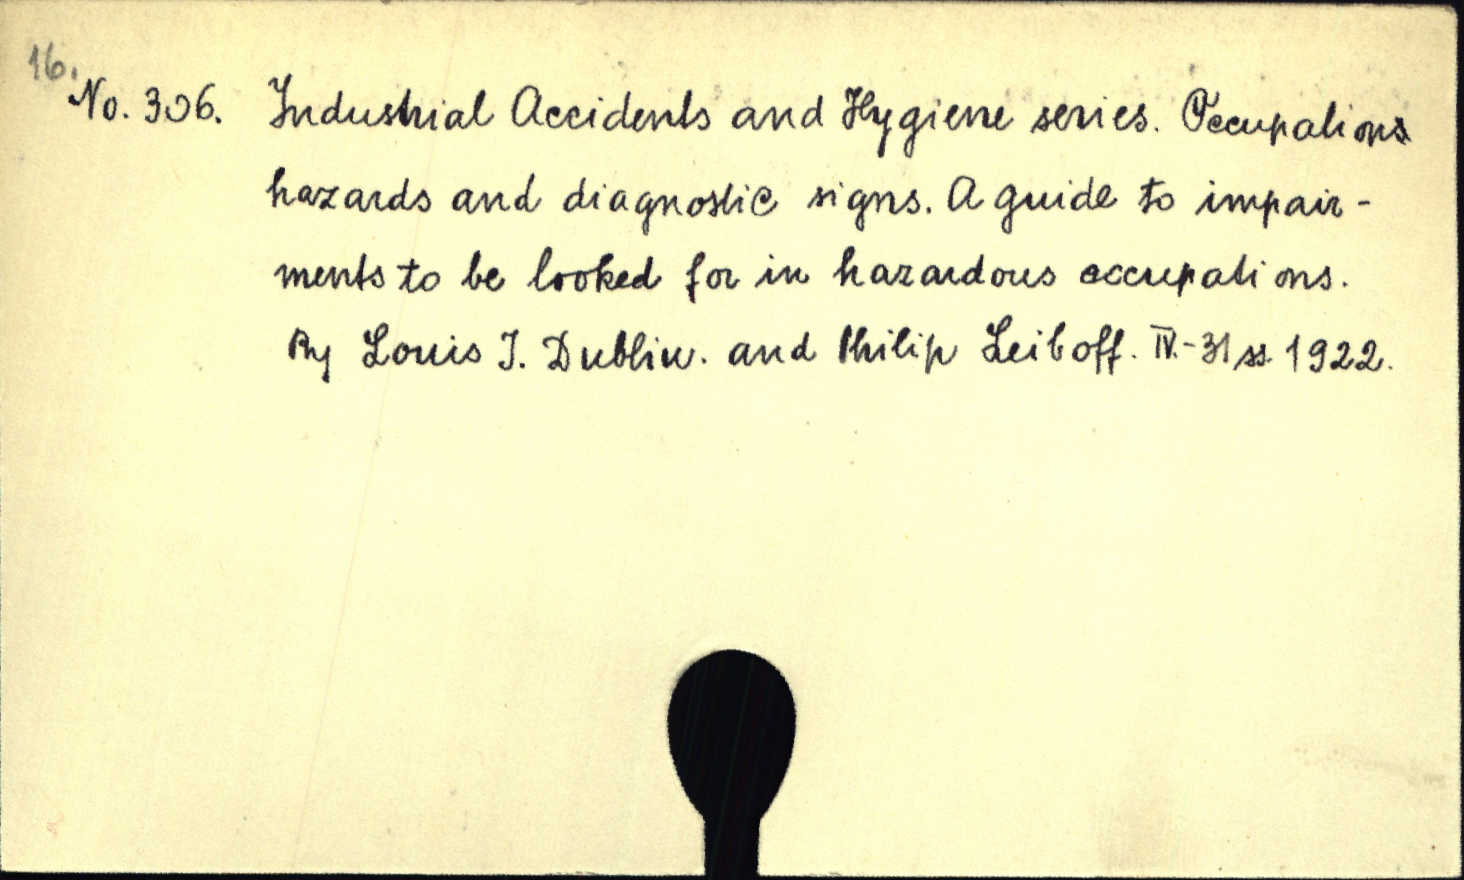 16.
No. 306. Industrial Accidents and Hygiene series. Occupations
hazards and diagnostic signs. A guide to impair-
ments to be looked for in hazardous occupations.
By Louis I. Dublin. and Philip Leiboff. IV.-31 ss. 1922.